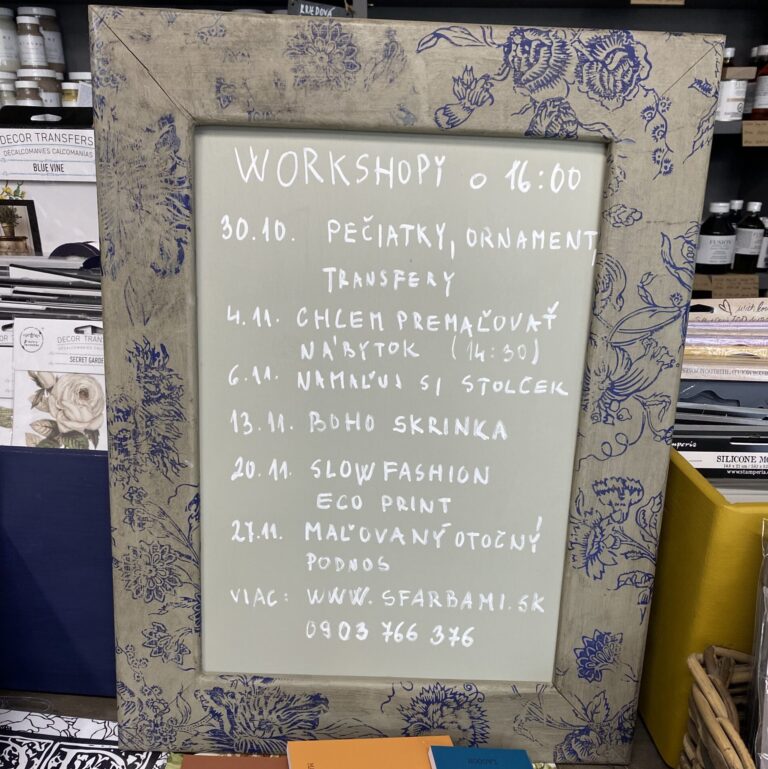 KRIEDOVÁ
DECOR TRANSFERS
DECALCOMANIES CALCOMANÍAS
BLUE VINE
WORKSHOPY o 16:00
30.10. PEČIATKY, ORNAMENT,
TRANSFERY
4.11. CHCEM PREMAĽOVAŤ
NÁBYTOK (14:30)
6.11. NAMAĽUJ SI STOLČEK
13.11. BOHO SKRINKA
20.11. SLOW FASHION
ECO PRINT
27.11. MAĽOVANÝ OTOČNÝ
PODNOS
VIAC: WWW.SFARBAMI.SK
0903 766 376
DECOR TRANSFERS
SECRET GARDE
FUSION
SILICONE MO
www.stamperia.c